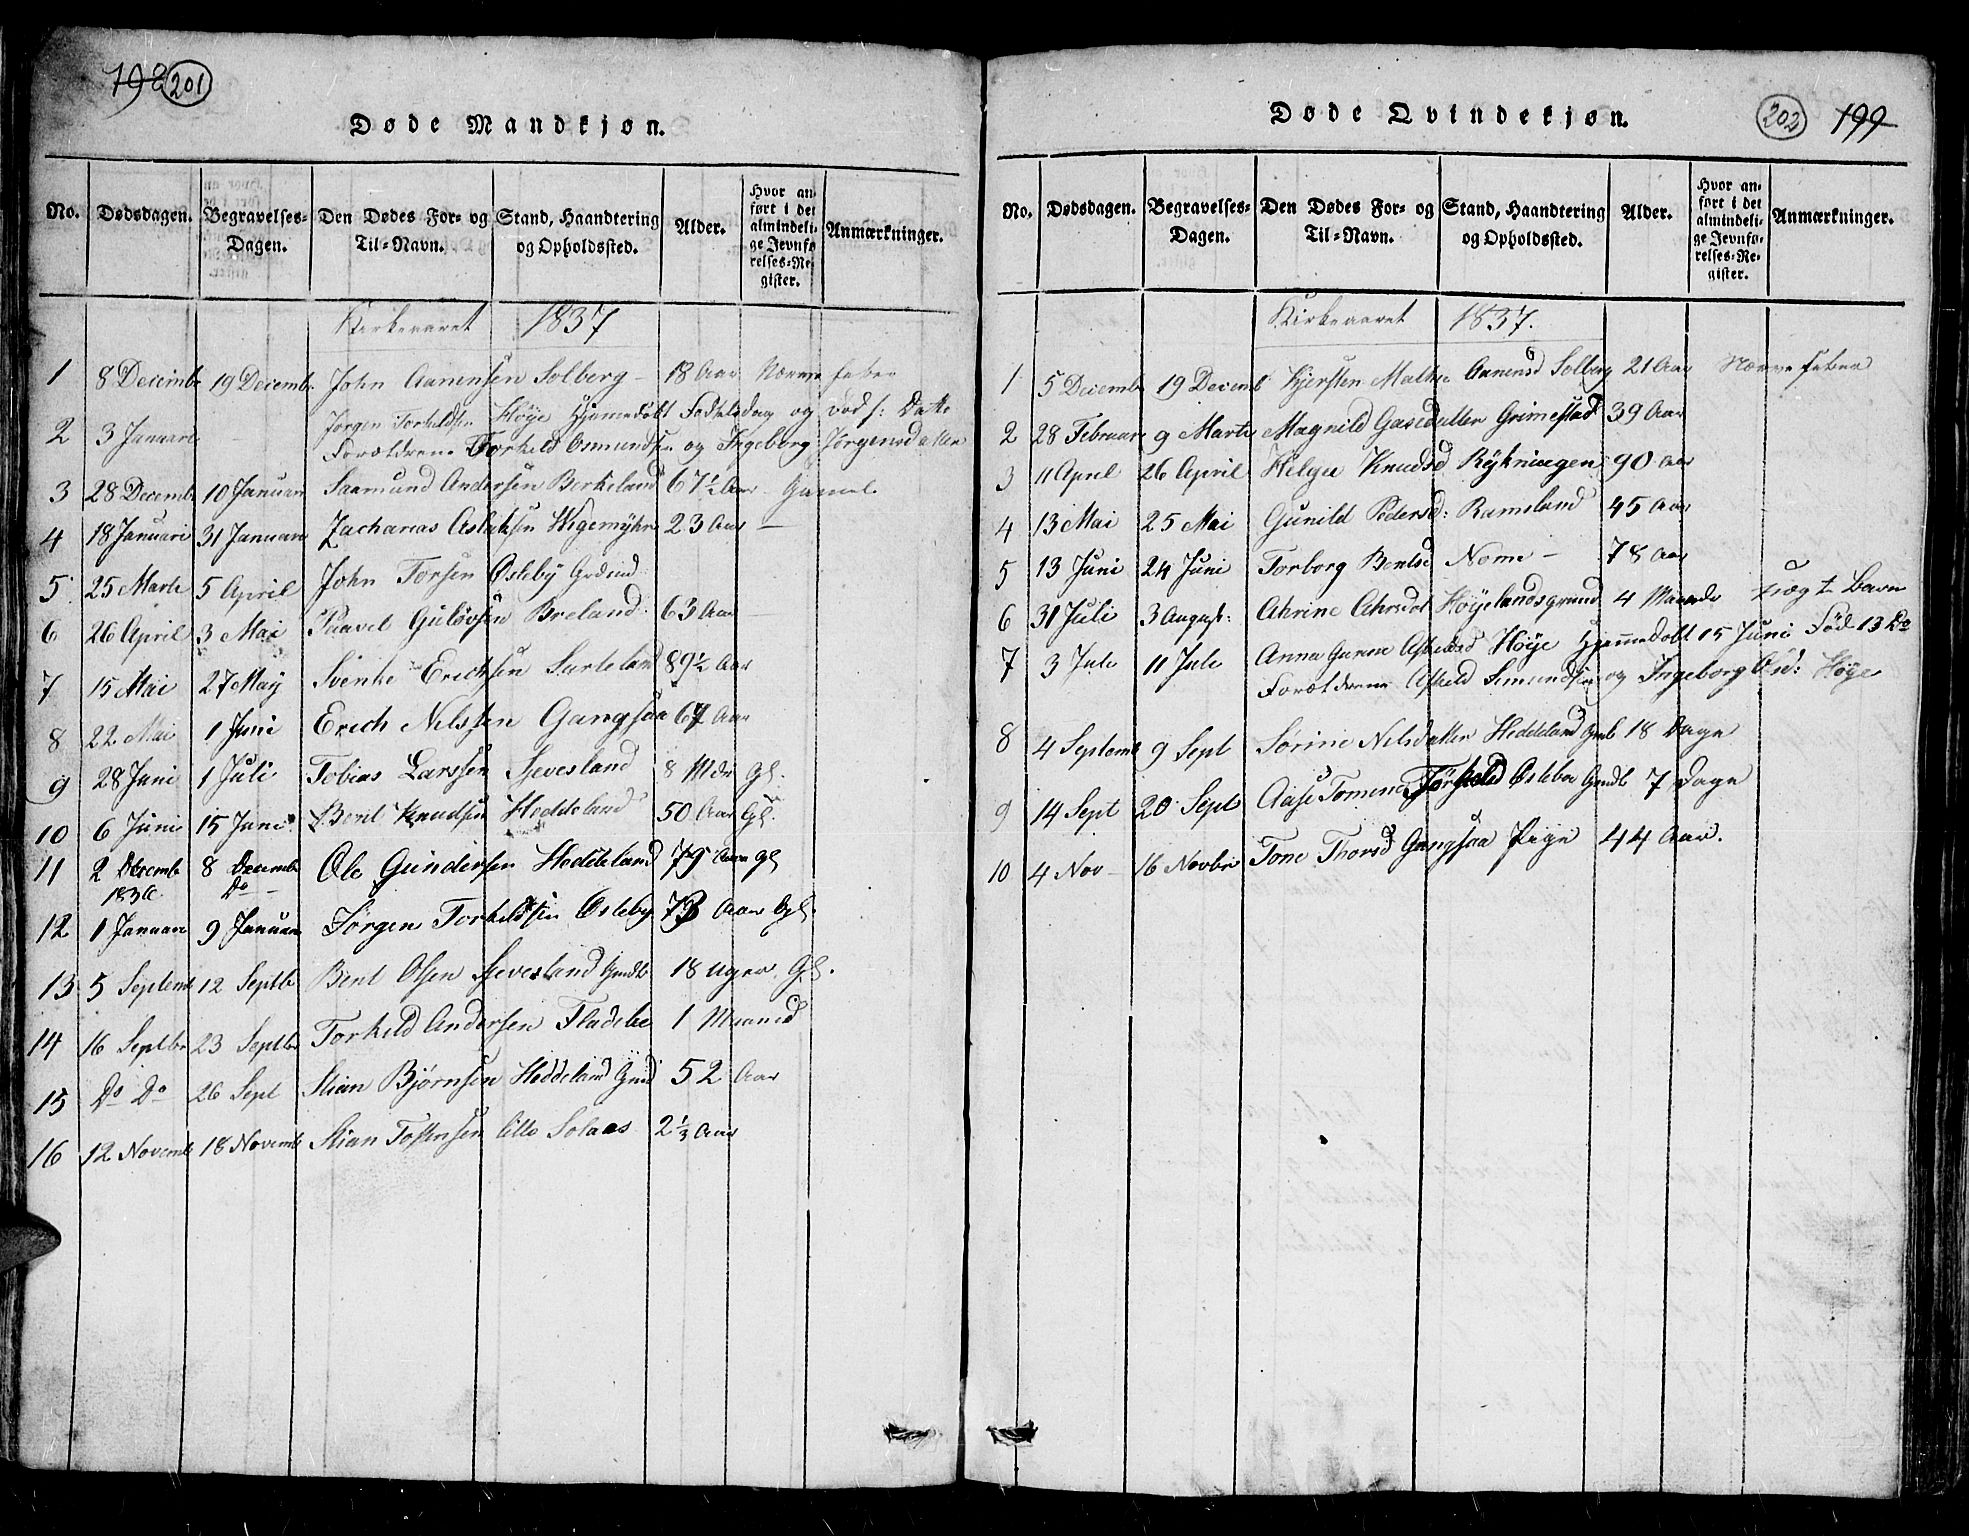 198 201
Døde Mandkjøn.
No. Dødsdagen. Begravelses-Dagen. Den Dødes For- og Til-Navn. Stand, Haandtering og Opholdssted. Alder. Hvor anført i det almindelige Jevnførelses-Register. Anmærkninger.
Kirkeaaret 1837
1 8 Decembr 19 Decembr John Aanensen Solberg - 18 Aar Nerve feber
2 3 Januari - Jørgen Torkildsen Høye Hjemmedøbt Fødselsdag og død s: Datto
Forældrene Torkild Osmundsen og Ingeborg Jørgensdatter
3 28 Decemb 10 Januari Saamund Andersen Berkeland 67½ Aar - Gamel.
4 18 Januari 31 Januari Zacharias Aslaksen Wigemyhr 23 Aar -
5 25 Marti 5 April John Torsen Øsleby Grdmd
6 26 April 3 Mai Paavel Guløvsen Breland 63 Aar
7 15 Mai 27 May Svenke Erichsen Surteland 89½ Aar
8 22 Mai 1 Juni Erich Nilssen Gangsaa 67 Aar
9 28 Juni 1 Juli Tobias Larssen Sjevesland 8 Mdr Gl.
10 6 Juni 15 Juni Bent Knudsen Heddeland 50 Aar Gl.
11 2 Decemb 8 Decemb Ole Gundersen Heddeland 79 Aar Gl
1836 Do -
12 1 Januari 9 Januari Jørgen Torkildsen Øsleby 73 Aar Gl.
13 5 Septemb 12 Septbr Bent Olsen Sjevesland Grndb 18 Uger Gl.
14 16 Septbr 23 Septbr Torkild Andersen Fladebe 1 Maaned
15 Do Do 26 Sept Stian Bjørnsen Heddeland Gmd 52 Aar
16 12 Novemb 18 Novemb Stian Tostensen Lille Solaas 2⅓ Aar
Døde Qvindekjøn.
202 199
No. Dødsdagen. Begravelses-Dagen. Den Dødes For- og Til-Navn. Stand, Haandtering og Opholdssted. Alder. Hvor anført i det almindelige Jevnførelses-Register. Anmærkninger.
Kirkeaaret 1837.
1 5 Decemb 19 Decemb Kjersten Malene Aanensd Solberg 21 Aar Nerve feber
2 28 Februari 9 Marti Magnild Gasedatter Grimestad 39 Aar
3 11 April 26 April Helga Knudsd Røyknesgen 90 Aar
4 13 Mai 25 Mai Gunild Pedersd: Ramsland 45 Aar
5 13 Juni 24 Juni Torborg Bentsd Nome - 78 Aar
6 31 Juli 3 August: Ahrine Ahrsdot Høyelandsgrund 4 Maaneder Uægte Barn
7 3 Juli 11 Juli Anna Gurine Askelsd Høye Hjemmedøbt 15 Juni Fød 13 Do
Forældrene Askeld Simundsen og Ingeborg Osd: Høye
8 4 Septemb 9 Sept Sørine Nilsdatter Heddeland Gmb 18 Dage
9 14 Sept 20 Sept Aase Tomine Torkeld Øslebø Grndb 7 Dage
10 4 Nov - 16 Novbr Tone Thorsd Gangsaa Pige 44 Aar.